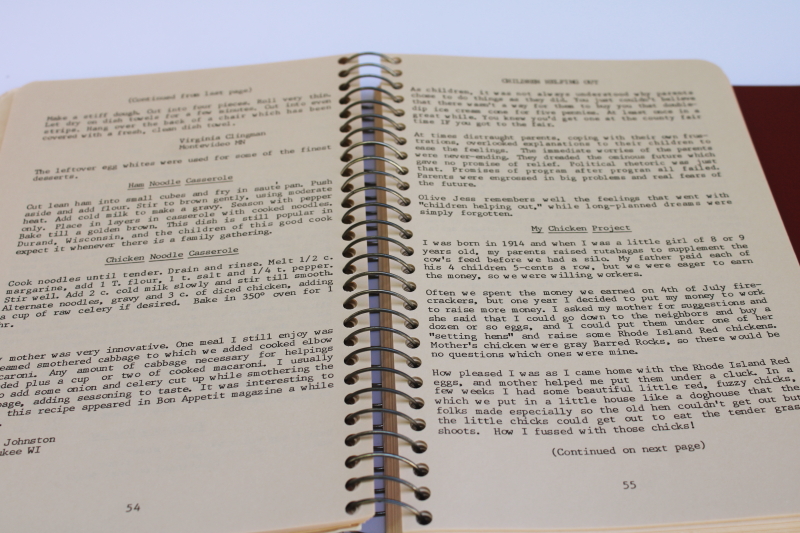 (Continued from last page)
Make a stiff dough. Cut into four pieces. Roll very thin.
Let dry on dish towels for a few minutes. Cut into even
strips. Hang over the back of a chair which has been
covered with a fresh, clean dish towel.
Virginia Clingman
Montevideo MN
The leftover egg whites were used for some of the finest
desserts.
Ham Noodle Casserole
Cut lean ham into small cubes and fry in saute pan. Push
aside and add flour. Stir to brown gently, using moderate
heat. Add cold milk to make a gravy. Season with pepper
only. Place in layers in casserole with cooked noodles.
Bake till a golden brown. This dish is still popular in
Durand, Wisconsin, and the children of this good cook
expect it whenever there is a family gathering.
Chicken Noodle Casserole
Cook noodles until tender. Drain and rinse. Melt 1/2 c.
margarine, add 1 T. flour, 1 t. salt and 1/4 t. pepper.
Stir well. Add 2 c. cold milk slowly and stir till smooth.
Alternate noodles, gravy and 3 c. of diced chicken, adding
a cup of raw celery if desired. Bake in 350° oven for 1
hr.
mother was very innovative. One meal I still enjoy was
eamed smothered cabbage to which we added cooked elbow
caroni. Any amount of cabbage necessary for helpings
ded plus a cup or two of cooked macaroni. I usually
o add some onion and celery cut up while smothering the
bage, adding seasoning to taste. It was interesting to
this recipe appeared in Bon Appetit magazine a while
Johnston
ukee WI
54
CHILDREN HELPING OUT
As children, it was not always understood why parents
chose to do things as they did. You just couldn't believe
that there wasn't a way for them to buy you that double-
dip ice cream cone for five pennies. At least once in a
great while. You knew you'd get one at the county fair
time if you got to the fair.
At times distraught parents, coping with their own frus-
trations, overlooked explanations to their children to
ease the feelings. The immediate worries of the parents
were never-ending. They dreaded the ominous future which
gave no promise of relief. Political rhetoric was just
that. Promises of program after program all failed.
Parents were engrossed in big problems and real fears of
the future.
Olive Jess remembers well the feelings that went with
"children helping out," while long-planned dreams were
simply forgotten.
My Chicken Project
I was born in 1914 and when I was a little girl of 8 or 9
years old, my parents raised rutabagas to supplement the
cow's feed before we had a silo. My father paid each of
his 4 children 5-cents a row, but we were eager to earn
the money, so we were willing workers.
Often we spent the money we earned on 4th of July fire-
crackers, but one year I decided to put my money to work
to raise more money. I asked my mother for suggestions and
she said that I could go down to the neighbors and buy a
dozen or so eggs, and I could put them under one of her
"setting hens" and raise some Rhode Island Red chickens.
Mother's chicken were gray Barred Rocks, so there would be
no questions which ones were mine.
How pleased I was as I came home with the Rhode Island Red
eggs, and mother helped me put them under a cluck. In a
few weeks I had some beautiful little red, fuzzy chicks,
which we put in a little house like a doghouse that the
folks made especially so the old hen couldn't get out but
the little chicks could get out to eat the tender gras
shoots. How I fussed with those chicks!
(Continued on next page)
55